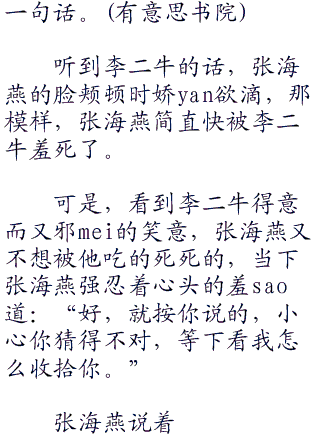 一句话。(有意思书院)
听到李二牛的话，张海
燕的脸颊顿时娇yan欲滴，那
模样，张海燕简直快被李二
牛羞死了。
可是，看到李二牛得意
而又邪mei的笑意，张海燕又
不想被他吃的死死的，当下
张海燕强忍着心头的羞sao
道：“好，就按你说的，小
心你猜得不对，等下看我怎
么收拾你。”
张海燕说着